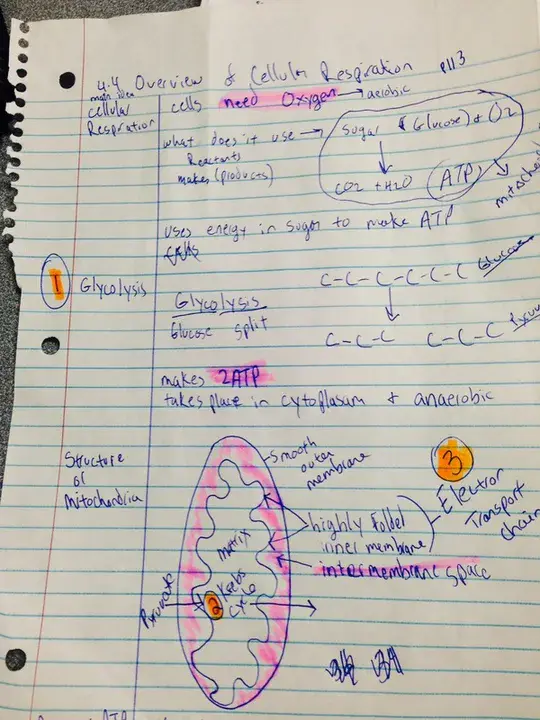 4.4 Overview of Cellular Respiration p113
main idea
cellular
Respiration
cells need Oxygen → aerobic
what does it use →
Reactants
makes (products)
Sugar (Glucose) + O2
CO2 + H2O ATP
uses energy in sugar to make ATP
1 Glycolysis
Glycolysis
Glucose split
C-C-C-C-C-C Glucose
C-C-C C-C-C
makes 2ATP
takes place in cytoplasum + anaerobic
Structure
of
Mitochondria
Smooth
outer
membrane
3
Electron
Transport
chain
highly folded
inner membrane
intermembrane space
matrix
Krebs
cycle
2
Pyruvate